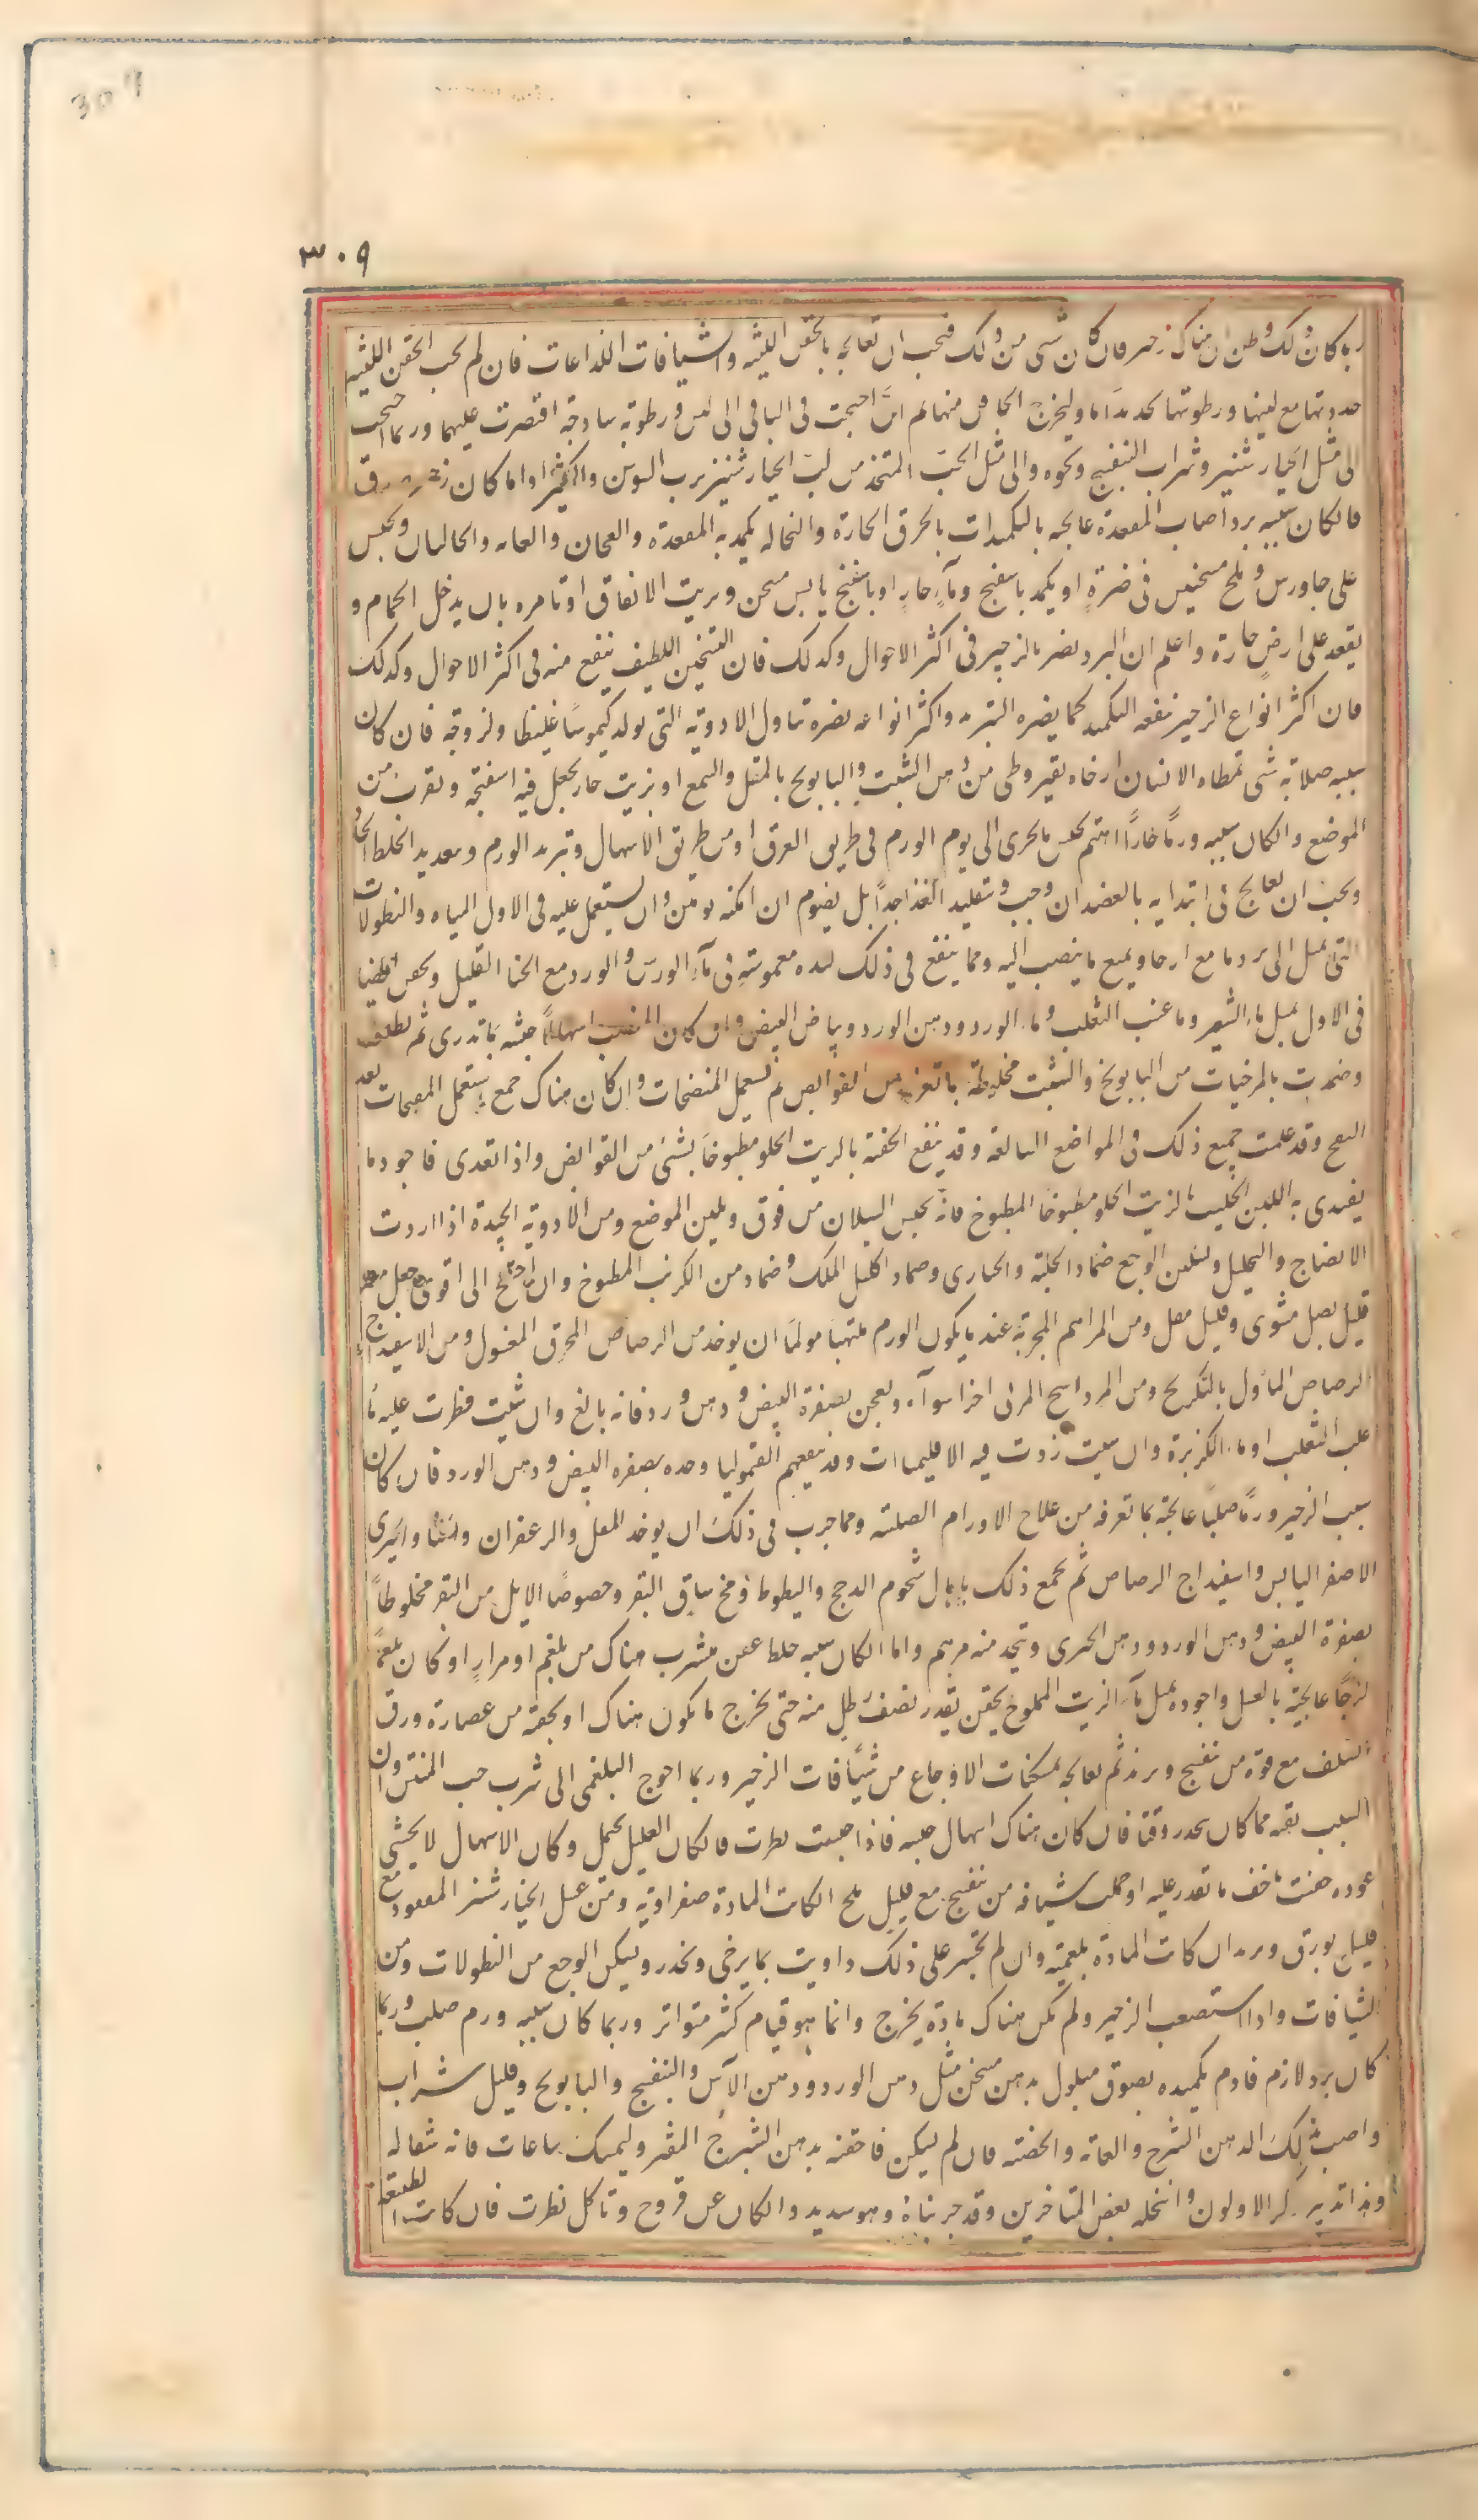 309
٣٠٩
ربما كان ذلك وظن ان هناك زحير فان كان شئ من ذلك فيجب ان تعالجه بالحقن اللينه والشيافات اللذاعات فان لم يجب الحقن اللينه
حدوبتها مع لينها ورطوبتها لحد بدا ما وليخرج الجاف منها ثم ان احتجت فى الباقى الى لين ورطوبة ساذجة اقتصرت عليها وربما احتجت
الى مثل الخيار شنبر وشراب البنفسج ونحوه والى مثل الحب المتخذ من لب الخيار شنبر برب السوس والكثيرا واما كان زحير
فان كان سببه برد اصاب المقعدة عالجه بالتكميدات بالخرق الحارة والنخاله يكمد به المقعدة والعجان والعانه والحالبان ويجلس
على جاورس وملح مسخنين فى ضرة او يكمد باسفنج وماء حار او باسفنج يابس مسخن وبزيت الانفاق او تامره بان يدخل الحمام و
يقعد على ارض حارة واعلم ان البرد يضر بالزحير فى اكثر الاحوال وكذلك فان التسخين اللطيف ينفع منه فى اكثر الاحوال وكذلك
فان اكثر انواع الزحير ينفعه التكميد كما يضره التبريد واكثر انواعه يضره تناول الادوية التى تولد كيموسا غليظا ولزوجة فان كان
سببه صلابة شئ تمطاه الانسان ارخاه بقيروطى من دهن الشبت والبابونج بالمقل والشمع او بزيت حار يجعل فيه اسفنجة ويقرب من
الموضع وان كان سببه ورما حارا اهتم بحبس ما يجرى الى يوم الورم فى طريق العرق او من طريق الاسهال وتبريد الورم وتعديد الخلط الحار
ويجب ان يعالج فى ابتدايه بالفصد ان وجب وتقليل الغذا جدا بل يصوم ان امكنه يومين وان يستعمل عليه فى الاول المياه والنطولات
التى تميل الى برد ما مع ارخا ويمنع ما ينصب اليه ومما ينفع فى ذلك لبده مغموسة فى ماء الورس والورد مع الحنا القليل ويحقن ايضا
فى الاول بمثل ماء الشعير وما عنب الثعلب وما الورد ودهن الورد وبياض البيض وان كان المنصب اسهالا حبسته بما تدرى ثم نطلت
وضمدت بالمرخيات من البابونج والشبت مخلوطة بما تعرفه من القوابض ثم تستعمل المنضجات وان كان هناك جمع يستعمل المفجرات بعد
النضج وقد علمت جميع ذلك فى المواضع السالفة وقد ينفع الحقنة بالزيت الحلو مطبوخا بشئ من القوابض واذا تغذى فاجود ما
يغتذى به اللبن الحليب بالزيت الحلو مطبوخا المطبوخ فانه يحبس السيلان من فوق ويلين الموضع ومن الادوية الجيدة اذا اردت
الانضاج والتحليل وتسكين الوجع ضماد الحلبة والخبازى وضماد اكليل الملك وضماد من الكرنب المطبوخ وان احتيج الى اقوى جعل معه
قليل بصل مشوى وقليل مقل ومن المراهم المجربة عند ما يكون الورم ملتهبا مولما ان يوخذ من الرصاص المحرق المغسول ومن الاسفيداج
الرصاص الماول بالتكريح ومن المرداسنج المربى اجزا سوآء ويعجن بصفرة البيض ودهن ورد فانه بالغ وان شئت قطرت عليه ماء
عنب الثعلب او ماء الكزبرة وان شئت زدت فيه الاقليميات وقد ينفعهم القيموليا وحده بصفره البيض ودهن الورد فان كان
سبب الزحير ورما صلبا عالجته بما تعرفه من علاج الاورام الصلبه ومما جرب فى ذلك ان يوخذ المقل والزعفران والحنا والخيرى
الاصفر اليابس واسفيداج الرصاص ثم يجمع ذلك باهال شحوم الدجج والبطوط ومخ ساق البقر وخصوصا الايل من البقر مخلوطا
بصفرة البيض ودهن الورد ودهن الخيرى ويتخذ منه مرهم واما ان كان سببه خلط عفن متشرب هناك من بلغم او مرار او كان بلغما
لزجا عالجته بالعسل واجوده بمثل ماء الزيت المملوح يحقن بقدر نصف رطل منه حتى يخرج ما يكون هناك او يحقنه من عصارة ورق
السلق مع قوة من بنفسج وتربذ ثم يعالجه بمسكنات الاوجاع من شيافات الزحير وربما احوج البلغمى الى شرب حب المنتن وان
السبب بقية مما كان يحدر وقتا فان كان هناك اسهال حبسه فاذا حبست نظرت فان كان العليل يحتمل وكان الاسهال لا يخشى
عوده حقنت باخف ما تقدر عليه او حملت شيافه من بنفسج مع قليل ملح ان كانت المادة صفراوية ومن عسل الخيار شنبر المعقود مع
قليل بورق وتربد ان كانت المادة بلغمية وان لم تجسر على ذلك داويت بما يرخى ويخدر ويسكن الوجع من النطولات ومن
الشيافات واذا استصعب الزحير ولم يكن هناك مادة يخرج وانما هو قيام كثير متواتر وربما كان سببه ورم صلب وربما
كان برد لازم فادم تكميده بصوف مبلول بدهن مسخن مثل دهن الورد ودهن الآس والبنفسج والبابونج وقليل شراب
واصب بذلك الدهن الشرج والعانه والخصيه فان لم يسكن فاحقنه بدهن الشيرج المفتر وليمسك ساعات فانه شفا له
وهذا تدبير ذكره الاولون وانتحله بعض المتاخرين وقد جربناه وهو سديد وان كان عن قروح وتاكل نظرت فان كانت الطبيعة